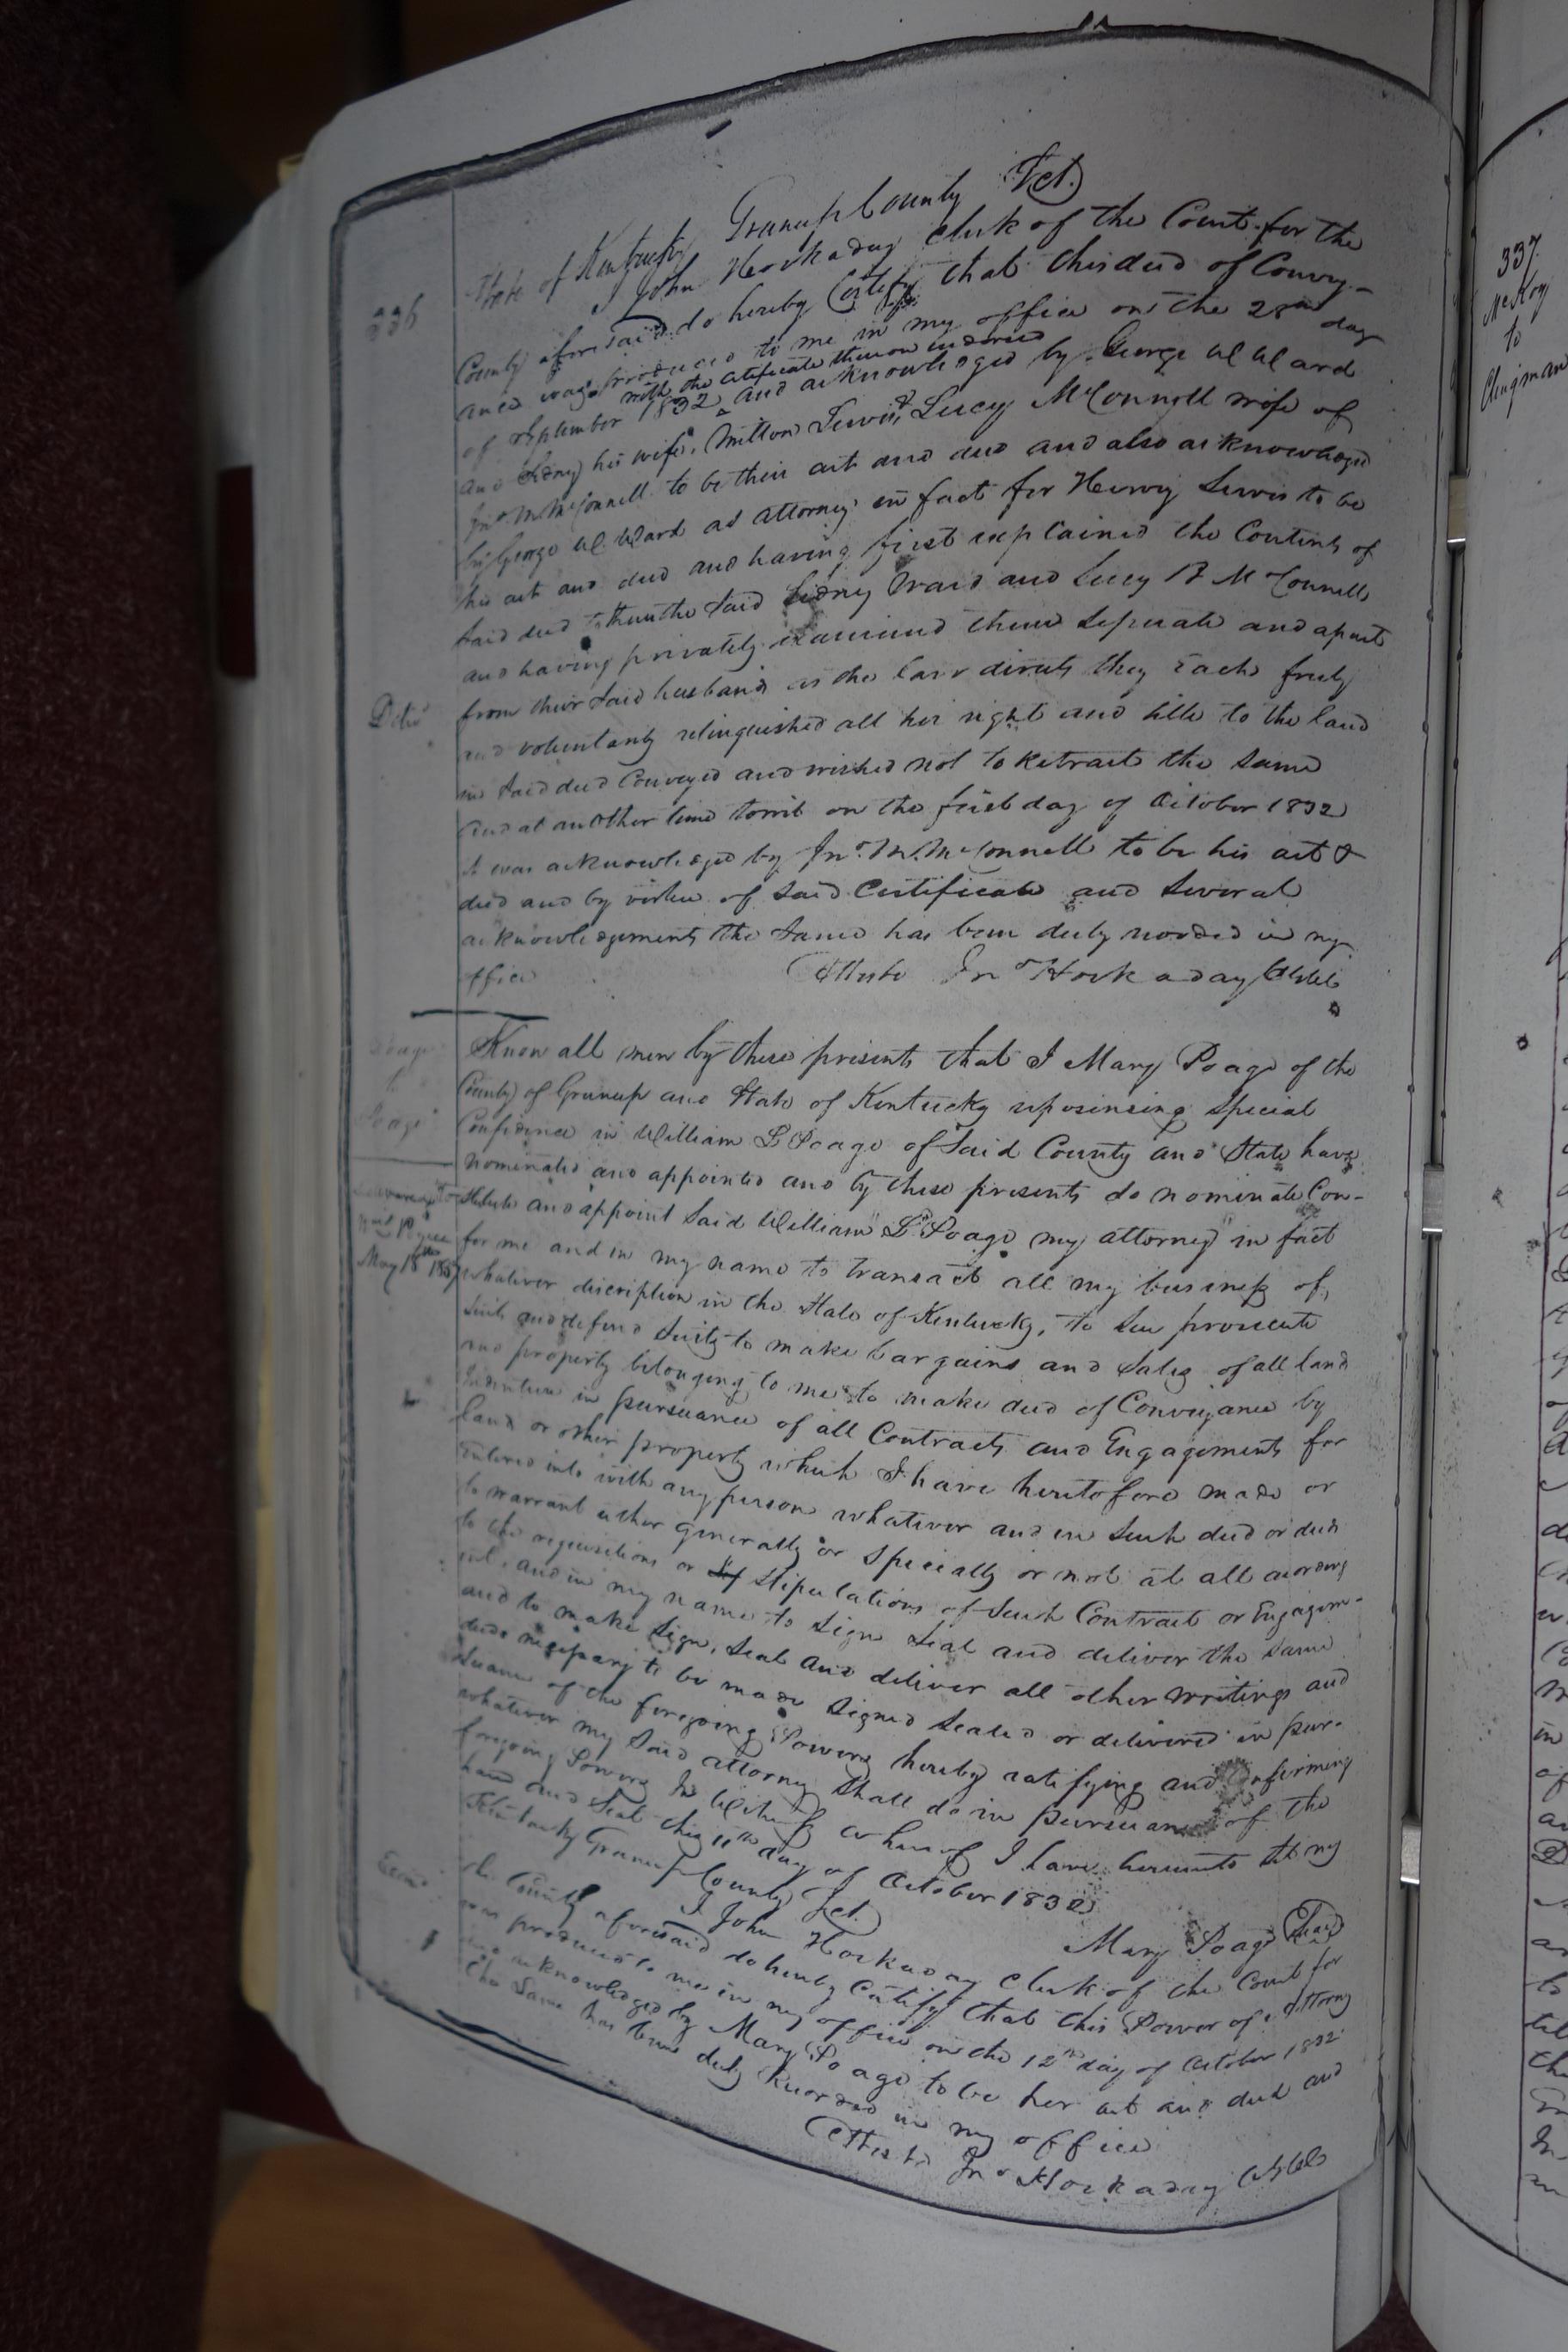 336
State of Kentucky Greenup County Sct.
I John Hockaday Clerk of the Court for the
County aforesaid do hereby Certify that this deed of Convey-
ance was produced to me in my office on the 28th day
with the certificate thereon indorsed
of September 1832 and acknowledged by George W Ward
and Sidney his wife, Milton Lewis, & Lucy McConnell wife of
Jno. M. McConnell to be their act and deed and also acknowledged
by George W. Ward as attorney in fact for Hervey Lewis to be
his act and deed and having first explained the Contents of
said deed to them the said Sidney Ward and Lucy B McConnell
and having privately examined them seperate and apart
from their said husbands as the law directs they Each freely
Deld
and voluntarily relinquished all her right and title to the land
in said deed Conveyed and wished not to Retract the same
And at another time towit on the first day of October 1832
it was acknowledged by Jno. M. McConnell to be his act &
deed and by virtue of said Certificate and several
acknowledgements the same has been duly recorded in my
office
Atteste Jno Hockaday
Poage
to
Poage
Know all men by these presents that I Mary Poage of the
County of Greenup and State of Kentucky reposinsing special
Confidence in William L Poage of said County and State have
nominated and appointed and by these presents do nominate Con-
Delivered to
Poage
May 18th
stitute and appoint said William L Poage my attorney in fact
for me and in my name to transact all my business of
whatever discription in the State of Kentucky, to sue prosecute
suits and defend suits to make bargains and sales of all land
and property belonging to me to make deed of Conveyance by
Indenture in pursuance of all Contracts and Engagements for
land or other property which I have heretofore made or
Entered into with any person whatever and in such deed or deeds
to warrant either generally or specially or not at all according
to the requisitions or stipulations of such Contract or Engagem-
ent, and in my name to sign seal and deliver the same
and to make sign, seal and deliver all other writings and
deeds necessary to be made signed sealed or delivered in pur-
suance of the foregoing Powers hereby ratifying and Confirming
whatever my said attorney shall do in pursuance of the
foregoing Powers In Witness whereof I have hereunto set my
hand and seal this 11th day of October 1832
Mary Poage Seal
Kentucky Greenup County Sct.
I John Hockaday Clerk of the Court for
the County aforesaid do hereby Certify that this Power of Attorny
was produced to me in my office on the 12th day of October 1832
and acknowledged by Mary Poage to be her act and deed and
the same has been duly Recorded in my office
Atteste Jno Hockaday
337
McKoy
to
Clingman